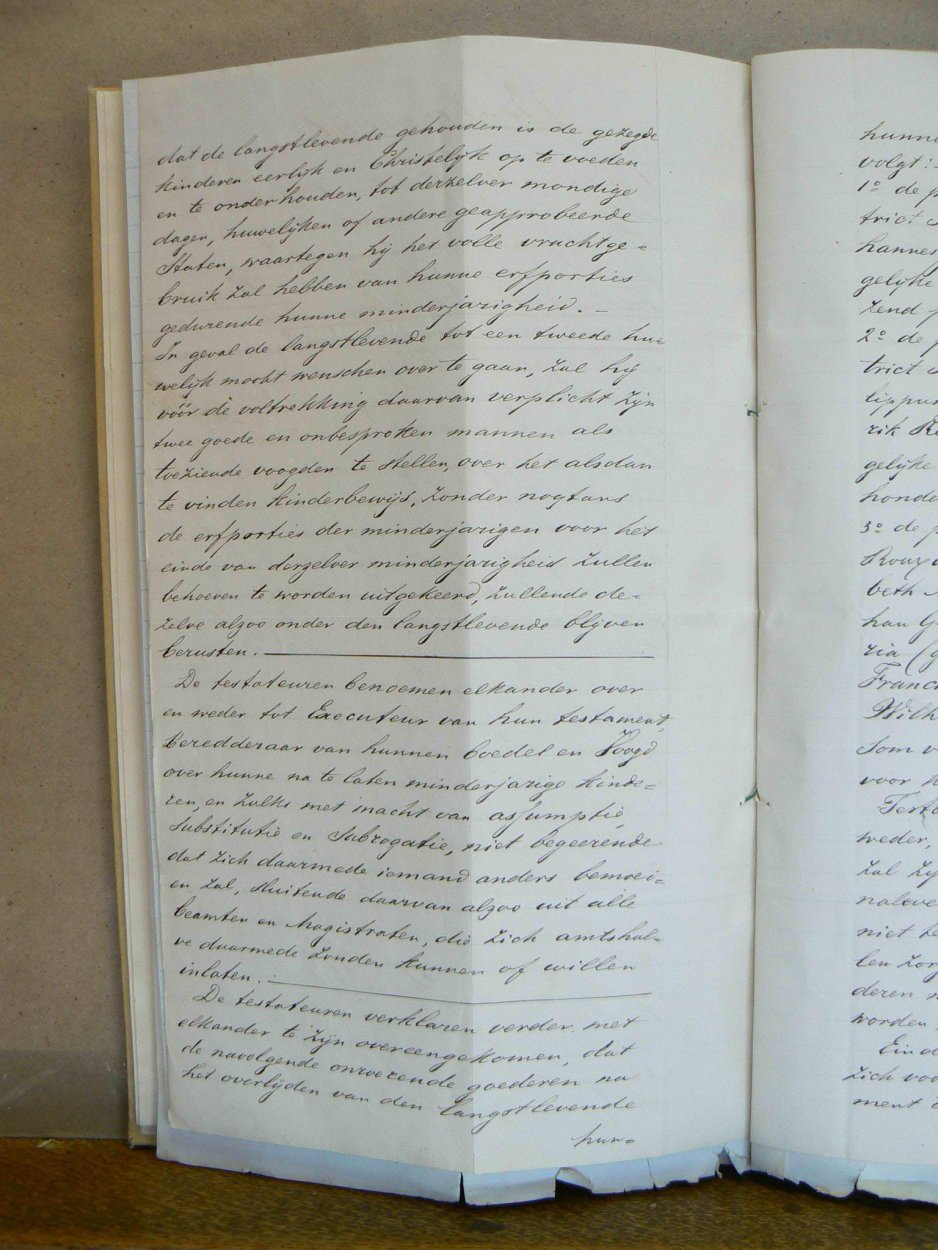 dat de langstlevende gehouden is de gezegde
kinderen eerlijk en Christelijk op te voeden
en te onderhouden, tot derzelver mondige
dagen, huwelijken of andere geapprobeerde
Staten, waartegen hij het volle vruchtge=
bruik zal hebben van hunne erfporties
gedurende hunne minderjarigheid. –
In geval de langstlevende tot een tweede hu=
welijk mocht wenschen over te gaan, zal hij
vóór de voltrekking daarvan verplicht zijn
twee goede en onbesproken mannen als
toeziende voogden te stellen, over het alsdan
te vinden kinderbewijs, zonder nogtans
de erfporties der minderjarigen voor het
einde van derzelver minderjarigheid zullen
behoeven te worden uitgekeerd, zullende de=
zelve alzoo onder den langstlevende blijven
berusten.
De testateuren benoemen elkander over
en weder tot Executeur van hun testament,
Beredderaar van hunnen boedel en Voogd
over hunne na te laten minderjarige kinde=
ren, en zulks met macht van assumptie,
Substitutie en Subrogatie, niet begeerende
dat zich daarmede iemand anders bemoei=
en zal, sluitende daarvan alzoo uit alle
beamten en Magistraten, die zich amtshal=
ve daarmede zouden kunnen of willen
inlaten.
De testateuren verklaren verder met
elkander te zijn overeengekomen, dat
de navolgende onroerende goederen na
het overlijden van den langstlevende
hun=
hunne
volgt:
1º de p
trict
hannes
gelijke
zend
2º de p
trict
lippus
rik
gelijke
honde
3º de p
Roux
beth
han
ria
Franc
Wilh
Som v
voor
Testa
weder,
zal zij
nalove
niet te
len zor
deren
worden
Eind
zich voo
ment